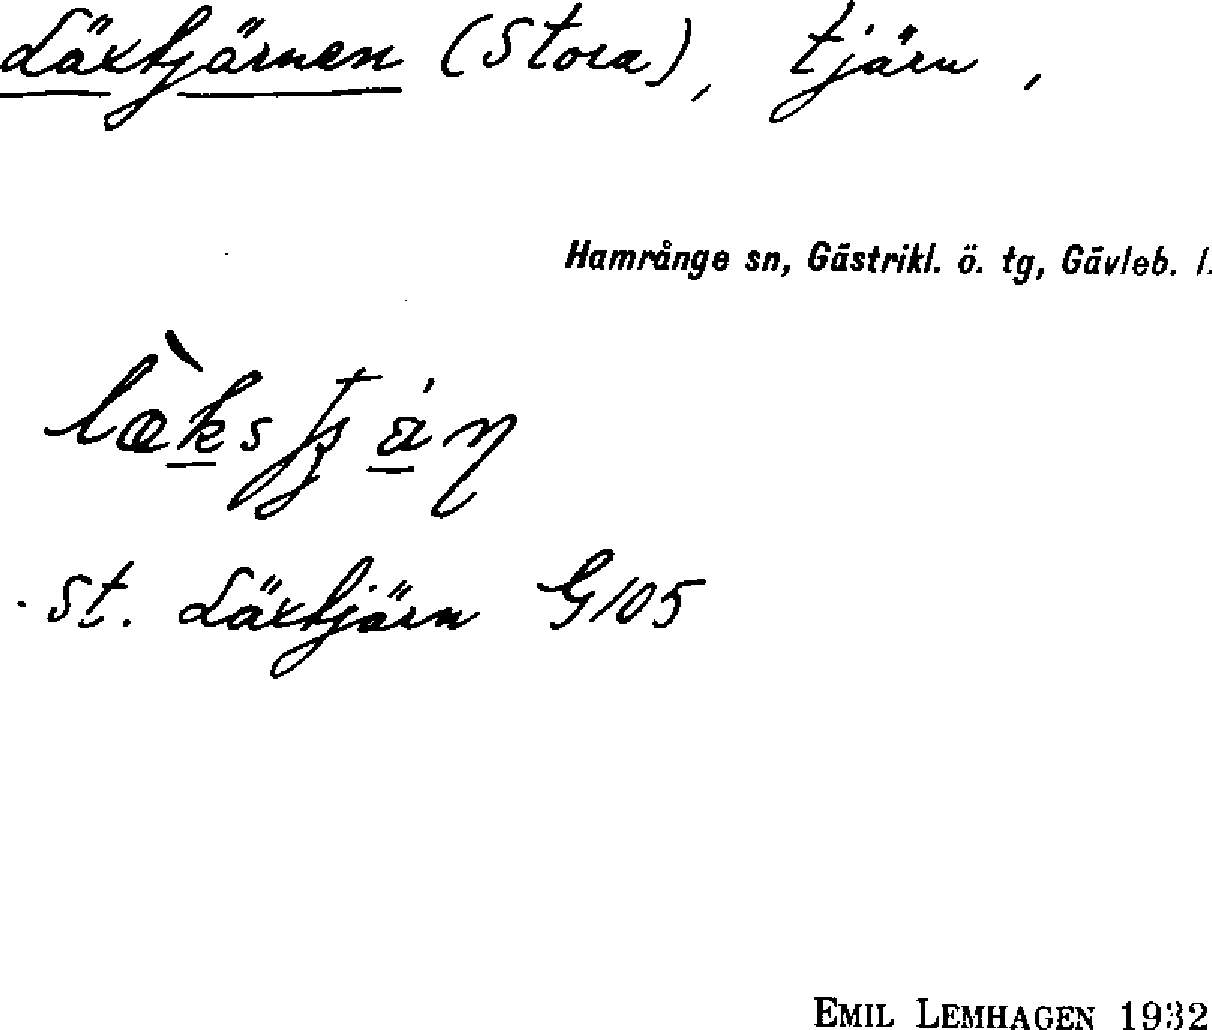 Läxtjärnen (Stora), tjärn,
Hamrånge sn, Gästrikl. ö. tg, Gävleb. l.
St. Läxtjärn G105
EMIL LEMHAGEN 1932